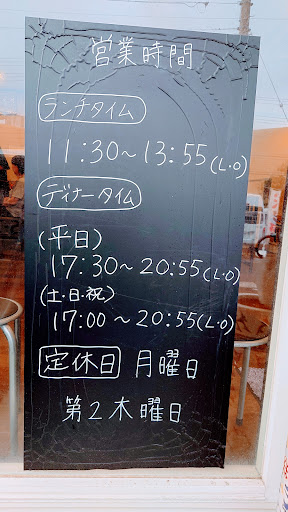 営業時間
ランチタイム
11:30～13:55(L・O)
ディナータイム
(平日)
17:30～20:55(L・O)
(土・日・祝)
17:00～20:55(L・O)
定休日 月曜日
第2木曜日